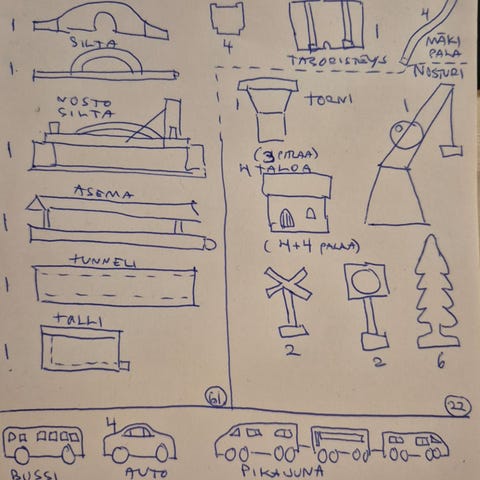 1
SILTA
4
1
TASORISTEYS
4
MÄKI
PALA
1
NOSTO
SILTA
1
1
TORNI
(3 PALAA)
NOSTURI
1
ASEMA
1
4 TALOA
(4+4 PALAA)
TUNNELI
1
TALLI
1
2
2
6
61
22
BUSSI
4
AUTO
PIKAJUNA